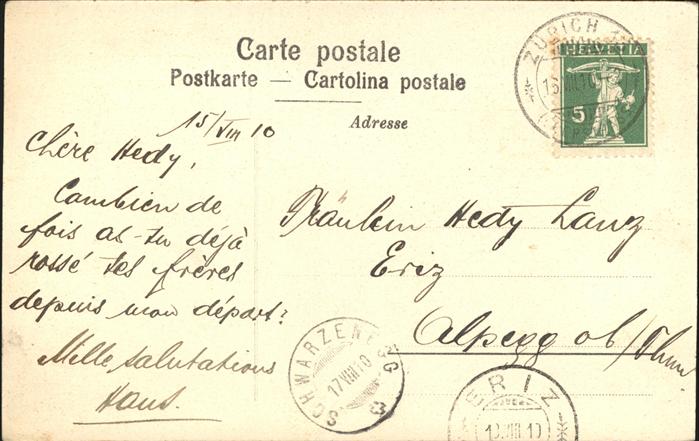 Carte postale
Postkarte — Cartolina postale
Adresse
ZÜRICH
HELVETIA
5
15/VIII 10
Chère Hedy,
Combien de
fois as-tu déjà
rossé tes frères
depuis mon départ?
Mille salutations
Hans.
Fräulein Hedy Lanz
Eriz
Alpegg ob/Thun
SCHWARZENEGG
17 VIII 10
ERIZ